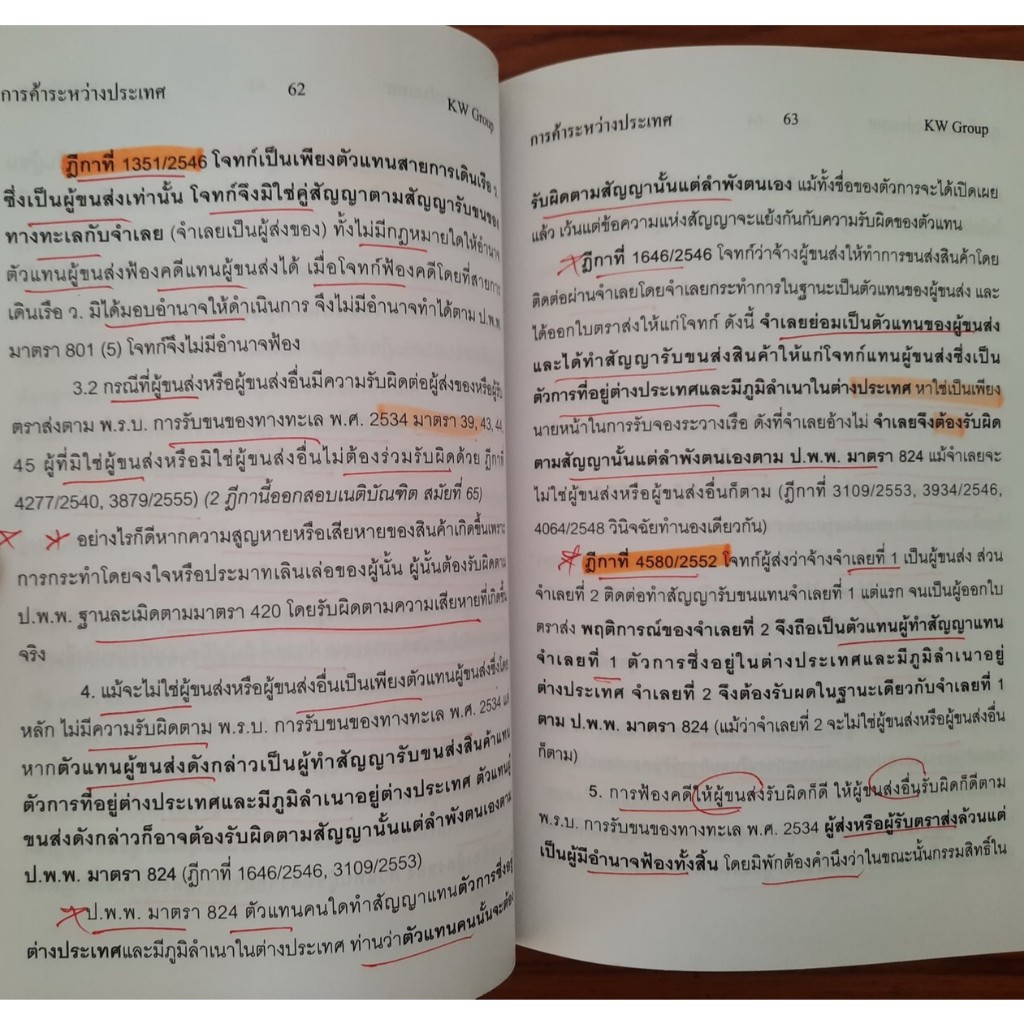 การค้าระหว่างประเทศ 62 KW Group
ฎีกาที่ 1351/2546 โจทก์เป็นเพียงตัวแทนสายการเดินเรือ ว.
ซึ่งเป็นผู้ขนส่งเท่านั้น โจทก์จึงมิใช่คู่สัญญาตามสัญญารับขนของ
ทางทะเลกับจำเลย (จำเลยเป็นผู้ส่งของ) ทั้งไม่มีกฎหมายใดให้อำนาจ
ตัวแทนผู้ขนส่งฟ้องคดีแทนผู้ขนส่งได้ เมื่อโจทก์ฟ้องคดีโดยที่สายการ
เดินเรือ ว. มิได้มอบอำนาจให้ดำเนินการ จึงไม่มีอำนาจทำได้ตาม ป.พ.พ.
มาตรา 801 (5) โจทก์จึงไม่มีอำนาจฟ้อง
3.2 กรณีที่ผู้ขนส่งหรือผู้ขนส่งอื่นมีความรับผิดต่อผู้ส่งของหรือผู้รับ
ตราส่งตาม พ.ร.บ. การรับขนของทางทะเล พ.ศ. 2534 มาตรา 39, 43, 44,
45 ผู้ที่มิใช่ผู้ขนส่งหรือมิใช่ผู้ขนส่งอื่นไม่ต้องร่วมรับผิดด้วย ฎีกาที่
4277/2540, 3879/2555) (2 ฎีกานี้ออกสอบเนติบัณฑิต สมัยที่ 65)
อย่างไรก็ดีหากความสูญหายหรือเสียหายของสินค้าเกิดขึ้นเพราะ
การกระทำโดยจงใจหรือประมาทเลินเล่อของผู้นั้น ผู้นั้นต้องรับผิดตาม
ป.พ.พ. ฐานละเมิดตามมาตรา 420 โดยรับผิดตามความเสียหายที่เกิดขึ้น
จริง
4. แม้จะไม่ใช่ผู้ขนส่งหรือผู้ขนส่งอื่นเป็นเพียงตัวแทนผู้ขนส่งซึ่งโดย
หลัก ไม่มีความรับผิดตาม พ.ร.บ. การรับขนของทางทะเล พ.ศ. 2534 แต่
หากตัวแทนผู้ขนส่งดังกล่าวเป็นผู้ทำสัญญารับขนส่งสินค้าแทน
ตัวการที่อยู่ต่างประเทศและมีภูมิลำเนาอยู่ต่างประเทศ ตัวแทนผู้
ขนส่งดังกล่าวก็อาจต้องรับผิดตามสัญญานั้นแต่ลำพังตนเองตาม
ป.พ.พ. มาตรา 824 (ฎีกาที่ 1646/2546, 3109/2553)
ป.พ.พ. มาตรา 824 ตัวแทนคนใดทำสัญญาแทนตัวการซึ่งอยู่
ต่างประเทศและมีภูมิลำเนาในต่างประเทศ ท่านว่าตัวแทนคนนั้นจะต้อง
การค้าระหว่างประเทศ 63 KW Group
รับผิดตามสัญญานั้นแต่ลำพังตนเอง แม้ทั้งชื่อของตัวการจะได้เปิดเผย
แล้ว เว้นแต่ข้อความแห่งสัญญาจะแย้งกันกับความรับผิดของตัวแทน
ฎีกาที่ 1646/2546 โจทก์ว่าจ้างผู้ขนส่งให้ทำการขนส่งสินค้าโดย
ติดต่อผ่านจำเลยโดยจำเลยกระทำการในฐานะเป็นตัวแทนของผู้ขนส่ง และ
ได้ออกใบตราส่งให้แก่โจทก์ ดังนี้ จำเลยย่อมเป็นตัวแทนของผู้ขนส่ง
และได้ทำสัญญารับขนส่งสินค้าให้แก่โจทก์แทนผู้ขนส่งซึ่งเป็น
ตัวการที่อยู่ต่างประเทศและมีภูมิลำเนาในต่างประเทศ หาใช่เป็นเพียง
นายหน้าในการรับจองระวางเรือ ดังที่จำเลยอ้างไม่ จำเลยจึงต้องรับผิด
ตามสัญญานั้นแต่ลำพังตนเองตาม ป.พ.พ. มาตรา 824 แม้จำเลยจะ
ไม่ใช่ผู้ขนส่งหรือผู้ขนส่งอื่นก็ตาม (ฎีกาที่ 3109/2553, 3934/2546,
4064/2548 วินิจฉัยทำนองเดียวกัน)
ฎีกาที่ 4580/2552 โจทก์ผู้ส่งว่าจ้างจำเลยที่ 1 เป็นผู้ขนส่ง ส่วน
จำเลยที่ 2 ติดต่อทำสัญญารับขนแทนจำเลยที่ 1 แต่แรก จนเป็นผู้ออกใบ
ตราส่ง พฤติการณ์ของจำเลยที่ 2 จึงถือเป็นตัวแทนผู้ทำสัญญาแทน
จำเลยที่ 1 ตัวการซึ่งอยู่ในต่างประเทศและมีภูมิลำเนาอยู่
ต่างประเทศ จำเลยที่ 2 จึงต้องรับผดในฐานะเดียวกับจำเลยที่ 1
ตาม ป.พ.พ. มาตรา 824 (แม้ว่าจำเลยที่ 2 จะไม่ใช่ผู้ขนส่งหรือผู้ขนส่งอื่น
ก็ตาม)
5. การฟ้องคดีให้ผู้ขนส่งรับผิดก็ดี ให้ผู้ขนส่งอื่นรับผิดก็ดีตาม
พ.ร.บ. การรับขนของทางทะเล พ.ศ. 2534 ผู้ส่งหรือผู้รับตราส่งล้วนแต่
เป็นผู้มีอำนาจฟ้องทั้งสิ้น โดยมิพักต้องคำนึงว่าในขณะนั้นกรรมสิทธิ์ใน